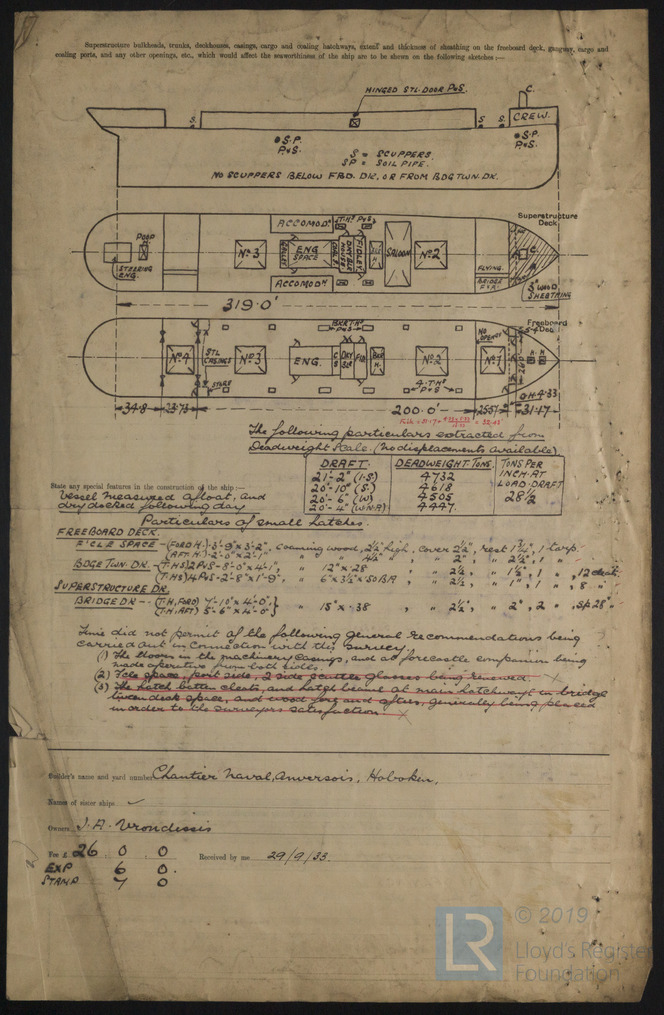 Superstructure bulkheads, trunks, deckhouses, casings, cargo and coaling hatchways, extent and thickness of sheathing on the freeboard deck, gangway, cargo and
coaling ports, and any other openings, etc., which would affect the seaworthiness of the ship are to be shown on the following sketches :—
HINGED STL. DOOR P&S.
C.
CREW.
S. S. S.
S.P. P&S.
S.P. P&S.
S = SCUPPERS.
SP = SOIL PIPE.
NO SCUPPERS BELOW FBD. DK, OR FROM BDG TWN. DK.
Superstructure Deck
ACCOMODN
T.Hs P&S
POOP
STEERING ENG.
No 3
GALLEY
ENG SPACE
FIDLEY
SALOON
No 2
C
FLYING
BRIDGE
ACCOMODN
WOOD SHEATHING
319.0'
Freeboard Dec
P&S
NO
No 4
STL CASINGS
No 3
ENG.
No 2
No 1
STORE
4. T.Hs P&S
34.8 23.73 200.0' 25.57 31.17
The following particulars extracted from
Deadweight Scale. (no displacements available)
DRAFT. DEADWEIGHT TONS. TONS PER INCH AT LOAD DRAFT
21'-2" (I.S) 4732
20'-10" (S.) 4618
20'-6" (W) 4505 28½
20'-4" (W.N.A) 4447.
State any special features in the construction of the ship :—
Vessel measured afloat, and
dry docked following day
Particulars of small hatches.
FREEBOARD DECK.
F'CLE SPACE - (FORD H.) - 3'-9" x 3'-2", coaming wood, 2½" high, cover 2½", rest 1¾", 1 tarp.
(AFT H.) - 2'-0" x 2'-1"
BDGE TWN. DK - (T.HS) 2 P&S - 8'-0" x 4'-1", " 12" x .28
(T.HS) 4 P&S - 2'-8" x 1'-9",
SUPERSTRUCTURE DK.
BRIDGE DK - (T.H, FORD) 7'-10" x 4'-0",
(T.H, AFT) 5'-6" x 4'-0" " 18" x .38
Time did not permit of the following general recommendations being
carried out in connection with this survey
(1) The doors in the machinery casings, and at forecastle companion being
made operative from both sides.
(2) F'cle space, port side, 2 side scuttle glasses being renewed.
(3) The hatch batten cleats, and hatch beams at main hatchways in bridge
tween deck space, and wood fore and afters, generally being placed
in order to the surveyors satisfaction.
Builder's name and yard number Chantier Naval, Anversois, Hoboken.
Names of sister ships
Owners J. A. Vrondissis
Fee £ 26 0 0 Received by me 29/9/33.
EXP 6 0
STAMP 7 0
LR
© 2019
Lloyd's Register
Foundation